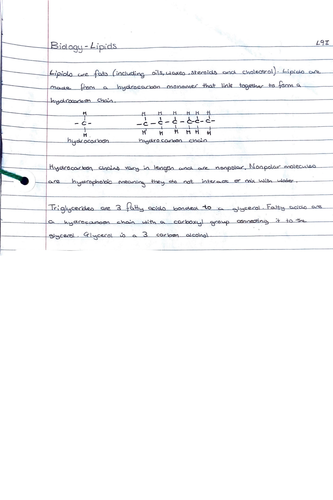 Biology - Lipids
Lipids are fats (including oils, waxes, steroids and cholesterol). Lipids are
made from a hydrocarbon monomer that link together to form a
hydrocarbon chain.
H H H H H H H
- C - - C - C - C - C - C - C -
H H H H H H H
hydrocarbon hydrocarbon chain
Hydrocarbon chains vary in length and are nonpolar. Nonpolar molecules
are hydrophobic meaning they do not interact or mix with water.
Triglycerides are 3 fatty acids bonded to a glycerol. Fatty acids are
a hydrocarbon chain with a carboxyl group connecting it to the
glycerol. Glycerol is a 3 carbon alcohol